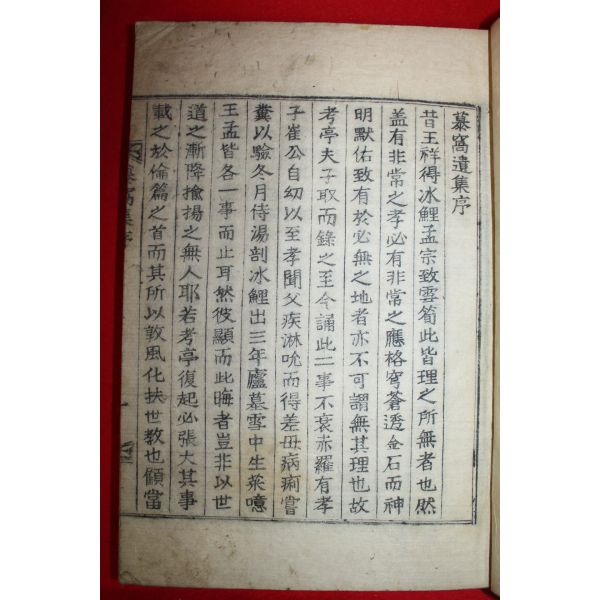 慕窩遺集序
昔王祥得冰鯉孟宗致雪筍此皆理之所無者也然
盖有非常之孝必有非常之應格穹蒼透金石而神
明默佑致有於必無之地者亦不可謂無其理也故
考亭夫子取而錄之至今誦此二事不衰赤羅有孝
子崔公自幼以至孝聞父疾淋吮而得差毋病痢嘗
糞以驗冬月侍湯剖冰鯉出三年廬墓雪中生菜噫
王孟皆各一事而止耳然彼顯而此晦者豈非以世
道之漸降揄揚之無人耶若考亭復起必張大其事
載之於倫篇之首而其所以敦風化扶世教也傾當
慕窩集序